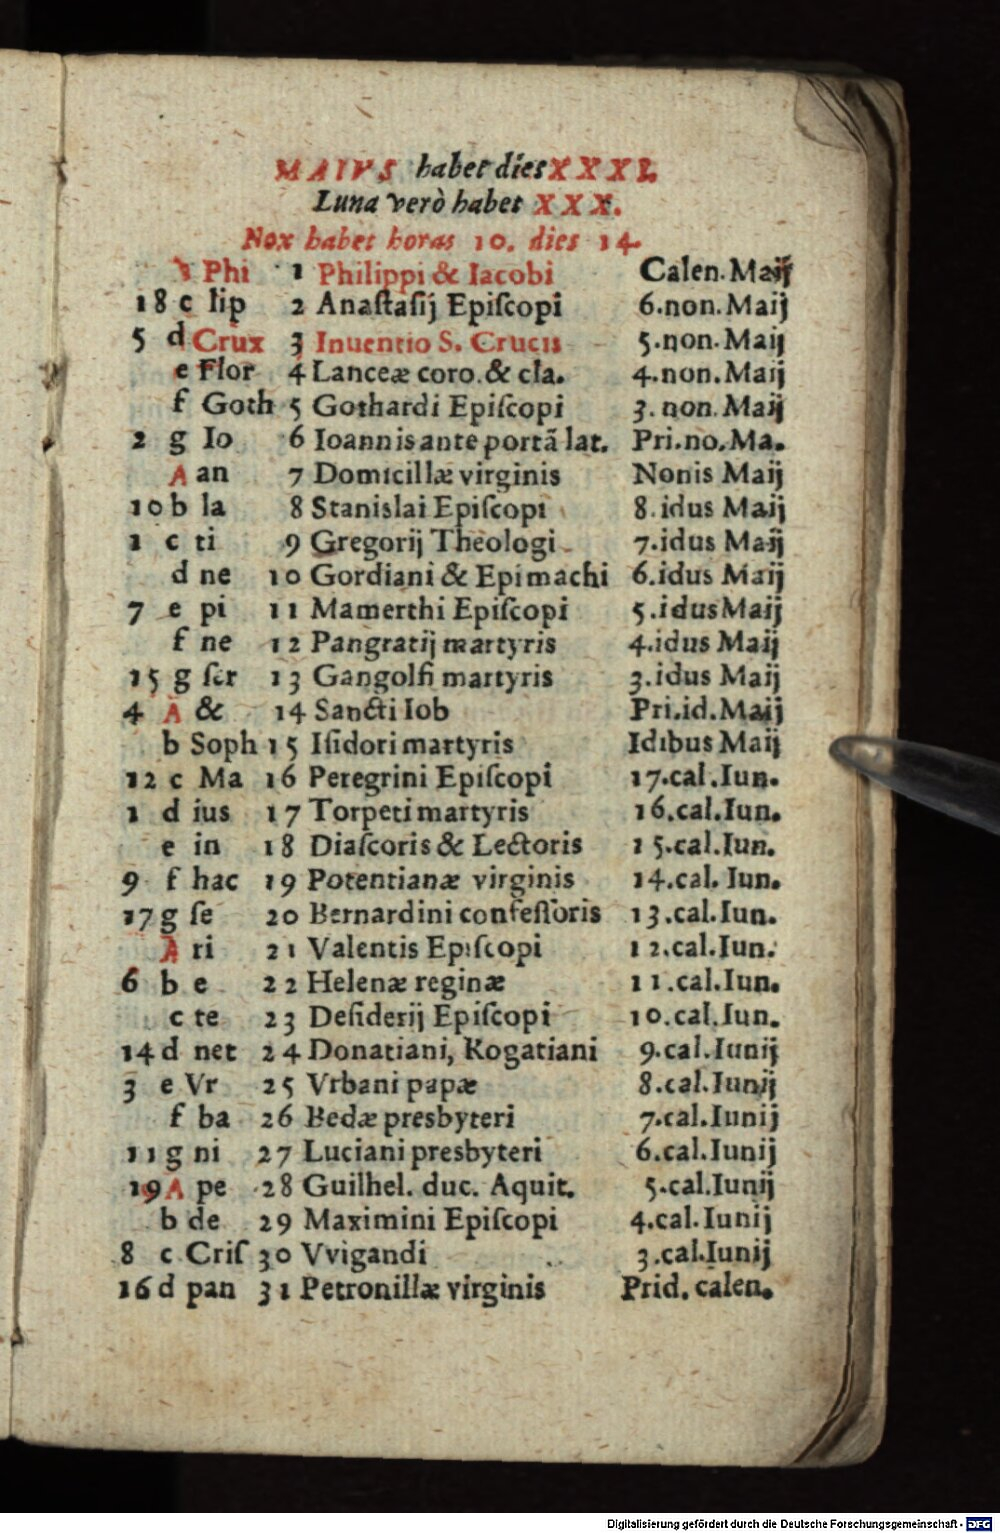 MAIVS habet dies XXXI.
Luna verò habet XXX.
Nox habet horas 10. dies 14.
Phi 1 Philippi & Iacobi Calen. Maij
18 c lip 2 Anaſtaſij Epiſcopi 6.non. Maij
5 d Crux 3 Inuentio S. Crucis 5.non. Maij
e Flor 4 Lanceæ coro. & cla. 4.non. Maij
f Goth 5 Gothardi Epiſcopi 3. non. Maij
2 g Io 6 Ioannis ante portã lat. Pri.no. Ma.
A an 7 Domicillæ virginis Nonis Maij
10 b la 8 Stanislai Epiſcopi 8.idus Maij
1 c ti 9 Gregorij Theologi 7.idus Maij
d ne 10 Gordiani & Epimachi 6.idus Maij
7 e pi 11 Mamerthi Epiſcopi 5.idus Maij
f ne 12 Pangratij martyris 4.idus Maij
15 g ſer 13 Gangolfi martyris 3.idus Maij
4 A & 14 Sancti Iob Pri.id. Maij
b Soph 15 Iſidori martyris Idibus Maij
12 c Ma 16 Peregrini Epiſcopi 17.cal.Iun.
1 d ius 17 Torpeti martyris 16.cal.Iun.
e in 18 Diaſcoris & Lectoris 15.cal.Iun.
9 f hac 19 Potentianæ virginis 14.cal. Iun.
17 g ſe 20 Bernardini confeſſoris 13.cal.Iun.
A ri 21 Valentis Epiſcopi 12.cal.Iun.
6 b e 22 Helenæ reginæ 11.cal.Iun.
c te 23 Deſiderij Epiſcopi 10.cal.Iun.
14 d net 24 Donatiani, Rogatiani 9.cal.Iunij
3 e Vr 25 Vrbani papæ 8.cal.Iunij
f ba 26 Bedæ presbyteri 7.cal.Iunij
11 g ni 27 Luciani presbyteri 6.cal.Iunij
19 A pe 28 Guilhel. duc. Aquit. 5.cal.Iunij
b de 29 Maximini Epiſcopi 4.cal.Iunij
8 c Criſ 30 Vvigandi 3.cal.Iunij
16 d pan 31 Petronillæ virginis Prid. calen.
Digitalisierung gefördert durch die Deutsche Forschungsgemeinschaft - DFG